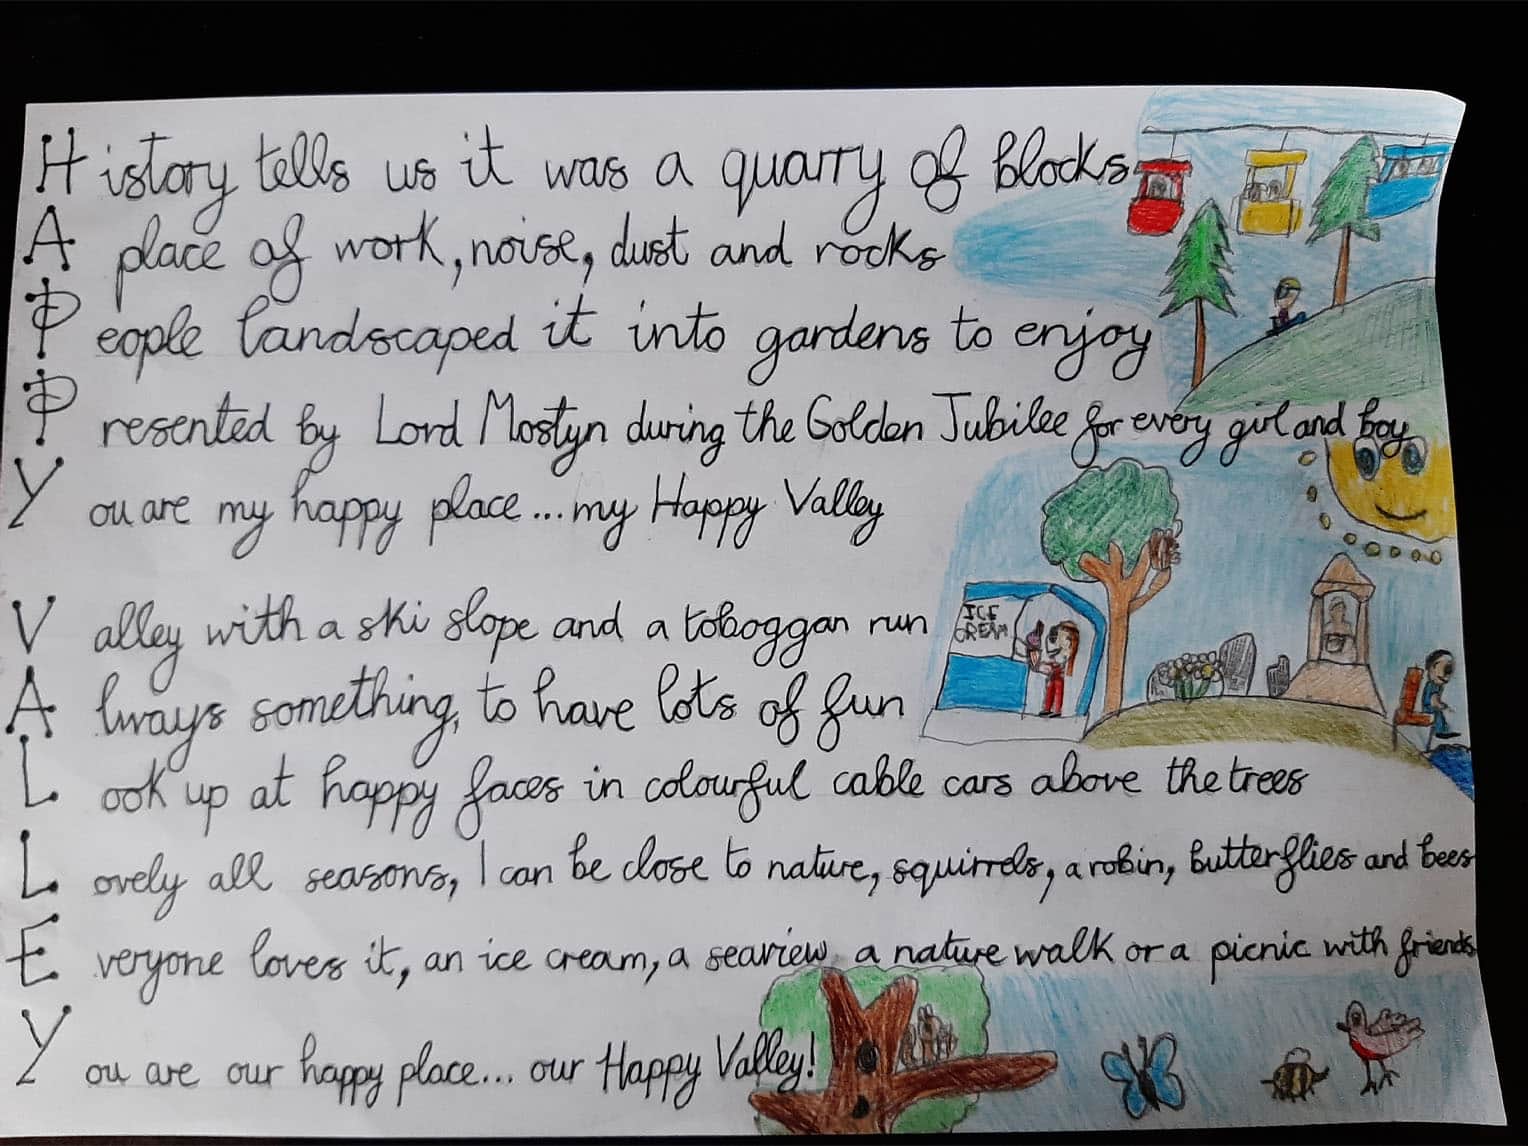 History tells us it was a quarry of blocks
A place of work, noise, dust and rocks
People landscaped it into gardens to enjoy
Presented by Lord Mostyn during the Golden Jubilee for every girl and boy
You are my happy place...my Happy Valley
Valley with a ski slope and a toboggan run
ICE
CREAM
Always something, to have lots of fun
Look up at happy faces in colourful cable cars above the trees
Lovely all seasons, I can be close to nature, squirrels, a robin, butterflies and bees
Everyone loves it, an ice cream, a seaview, a nature walk or a picnic with friends
You are our happy place... our Happy Valley!